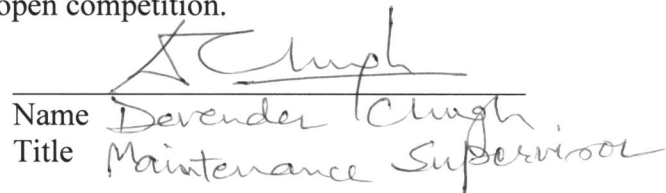 open competition.
Chugh
Name Devender Chugh
Title Maintenance Supervisor